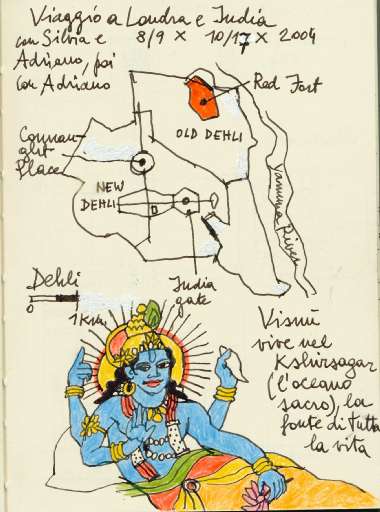 Viaggio a Londra e India
con Silvia e 8/9 x 10/17 x 2004
Adriano, poi
con Adriano
Red Fort
OLD DEHLI
Connau-
ght
Place
Yamuna River
NEW
DEHLI
Dehli
0
1 Km.
India
gate
Visnù
vive nel
Kshirsagar
(l'oceano
sacro), la
fonte di tutta
la vita